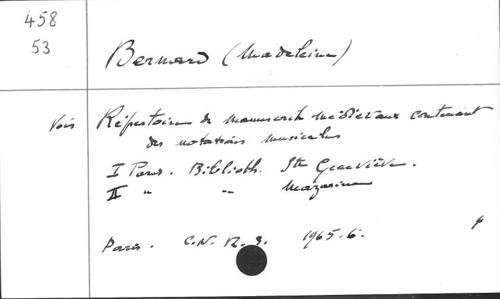 458
53
Bernard (Madeleine)
Voir Répertoire de manuscrits médiévaux contenant
des notations musicales
I Paris. Biblioth. Ste Geneviève.
II " " Mazarine
Paris. C.N.R.S. 1965-6.